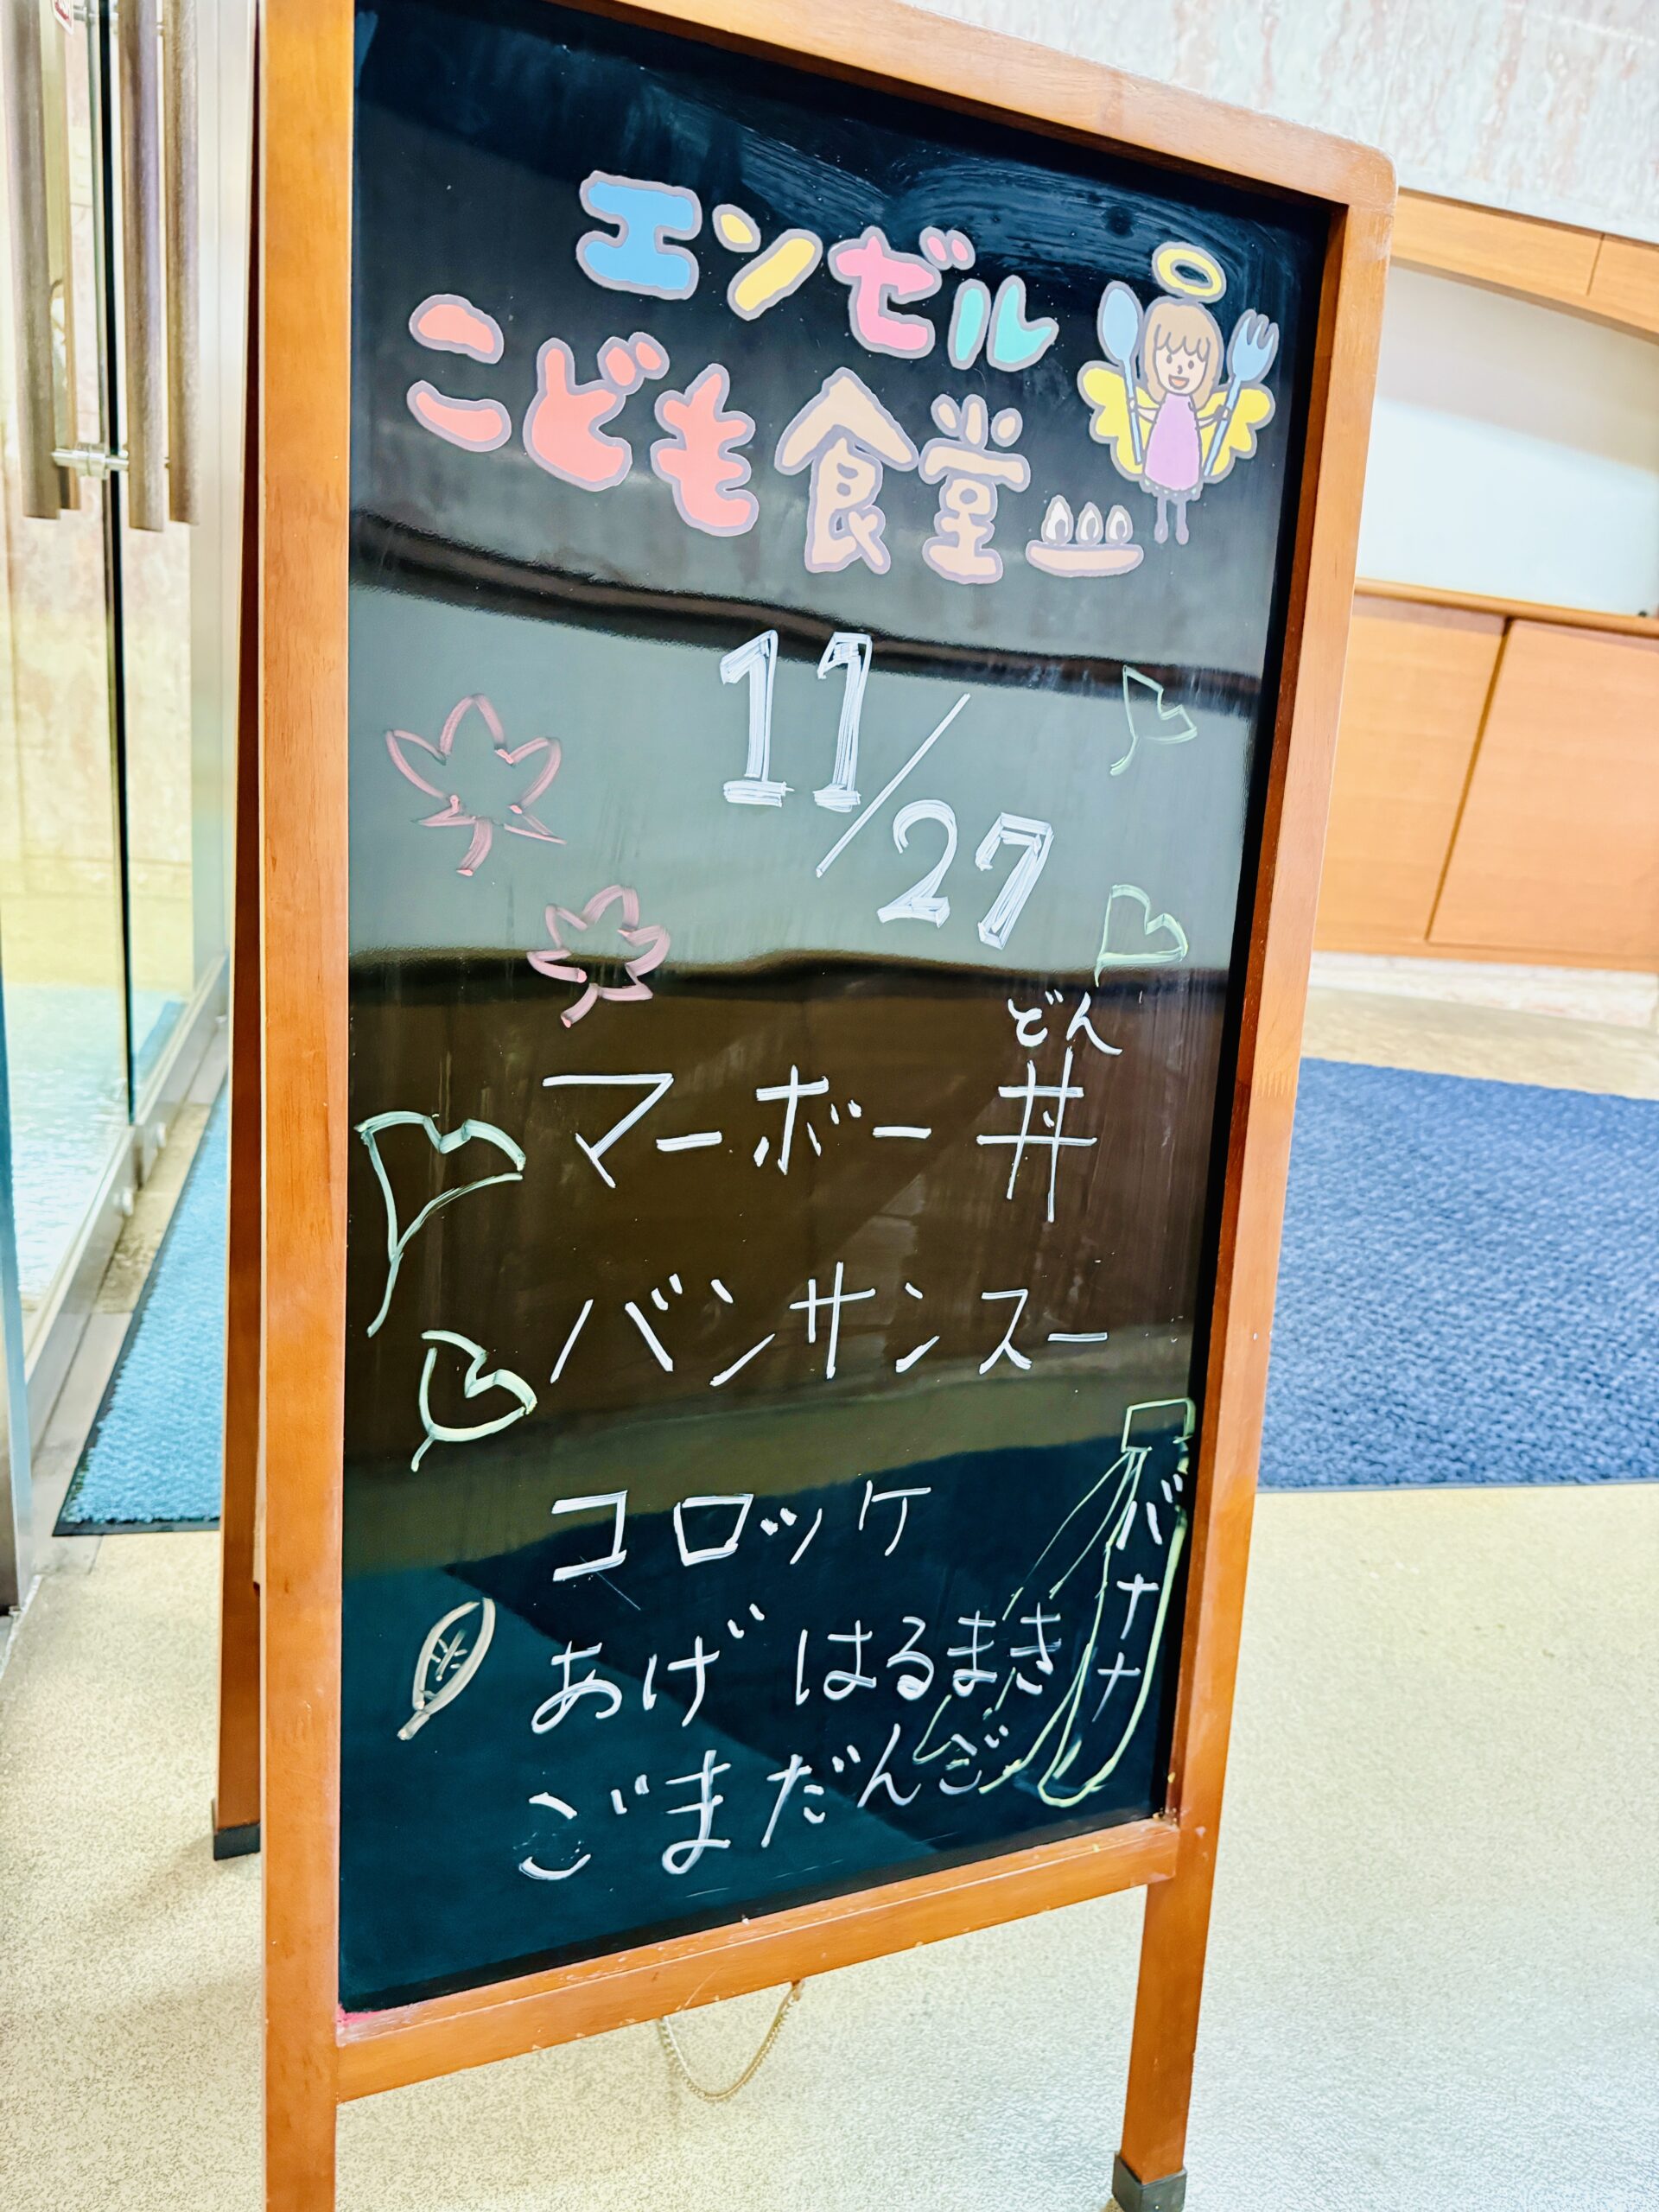 エンゼル
こども食堂
11/27
どん
マーボー丼
バンサンスー
コロッケ
あげはるまき
ごまだんご
バナナ